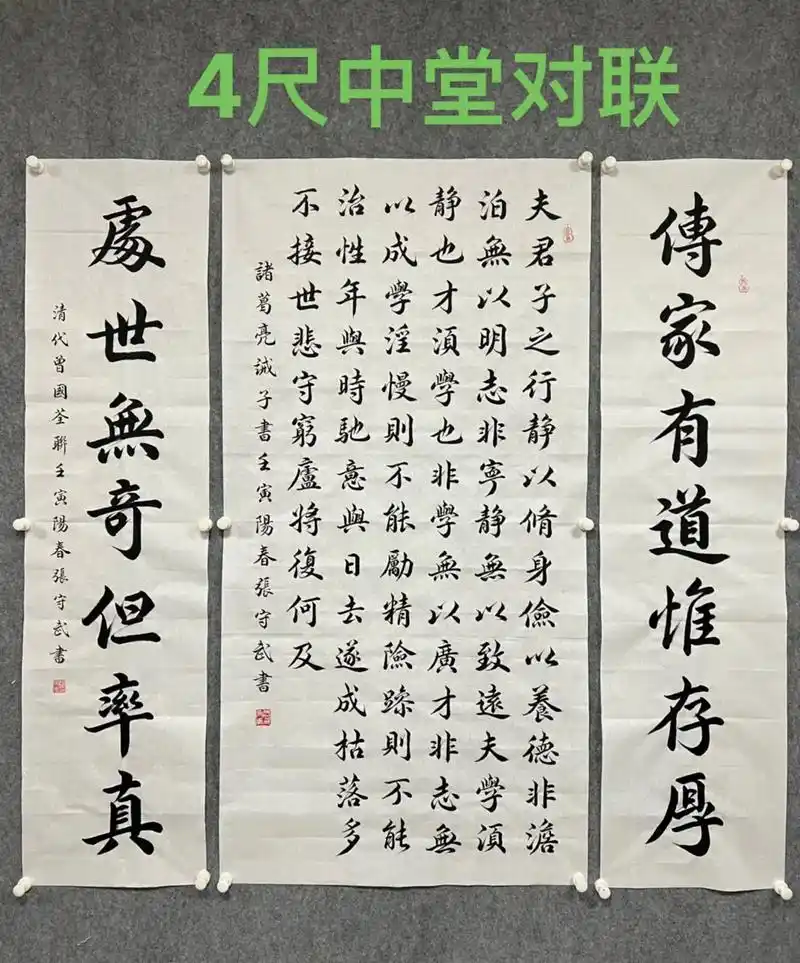 4尺中堂对联
傳家有道惟存厚
夫君子之行静以脩身儉以養德非澹
泊無以明志非寧静無以致遠夫學須
静也才須學也非學無以廣才非志無
以成學淫慢則不能勵精險躁則不能
治性年與時馳意與日去遂成枯落多
不接世悲守窮廬將復何及
諸葛亮誡子書壬寅陽春張守武書
處世無奇但率真
清代曾國荃聯壬寅陽春張守武書